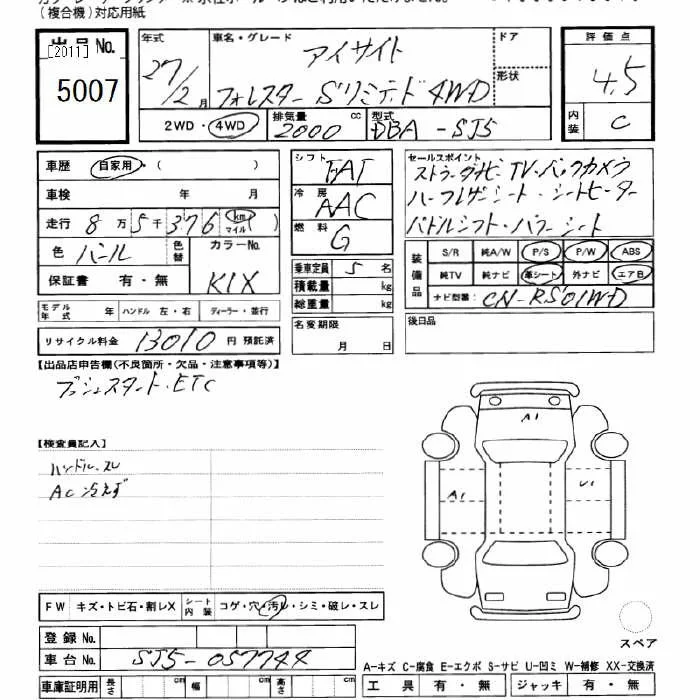 (複合機)対応用紙
出品No. [2011]
5007
年式 27/2月
車名・グレード アイサイト
フォレスター S'リミテッド 4WD
ドア
形状
評価点 4.5
内装 C
2WD・4WD 排気量 2000 cc 型式 DBA-SJ5
車歴 自家用・( )
車検 年 月
走行 8万5千376 (km マイル)
色 パール 色替 カラーNo. K1X
保証書 有・無
モデル年式 年 ハンドル 左・右 ディーラー・並行
リサイクル料金 13010 円 預託済
シフト FAT
冷房 AAC
燃料 G
乗車定員 5 名
積載量 kg
総重量 kg
名変期限
月 日
セールスポイント
ストラーダナビ TV・バックカメラ
ハーフレザーシート・シートヒーター
パドルシフト・パワーシート
装備品 S/R 純A/W P/S P/W ABS
純TV 純ナビ 革シート 外ナビ エアB
ナビ型番( CN-RS01WD )
後日品
【出品店申告欄(不良箇所・欠品・注意事項等)】
プッシュスタート・ETC
【検査員記入】
ハンドル スレ
AC冷えず
A1
A1
U1
FW キズ・トビ石・割レX シート内装 コゲ・穴・汚レ・シミ・破レ・スレ
スペア
登録No.
車台No. SJ5-057744
A-キズ C-腐食 E-エクボ S-サビ U-凹ミ W-補修 XX-交換済
車庫証明用 長さ cm 幅 cm 高さ cm
工具 有・無 ジャッキ 有・無